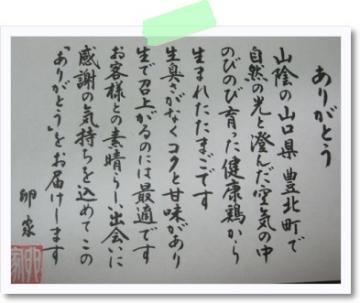 ありがとう
山陰の山口県豊北町で
自然の光と澄んだ空気の中
のびのび育った健康鶏から
生まれたたまごです
生臭さがなくコクと甘味があり
生で召上がるのには最適です
お客様との素晴らしい出会いに
感謝の気持ちを込めてこの
「ありがとう」をお届けします
卵家
卵家